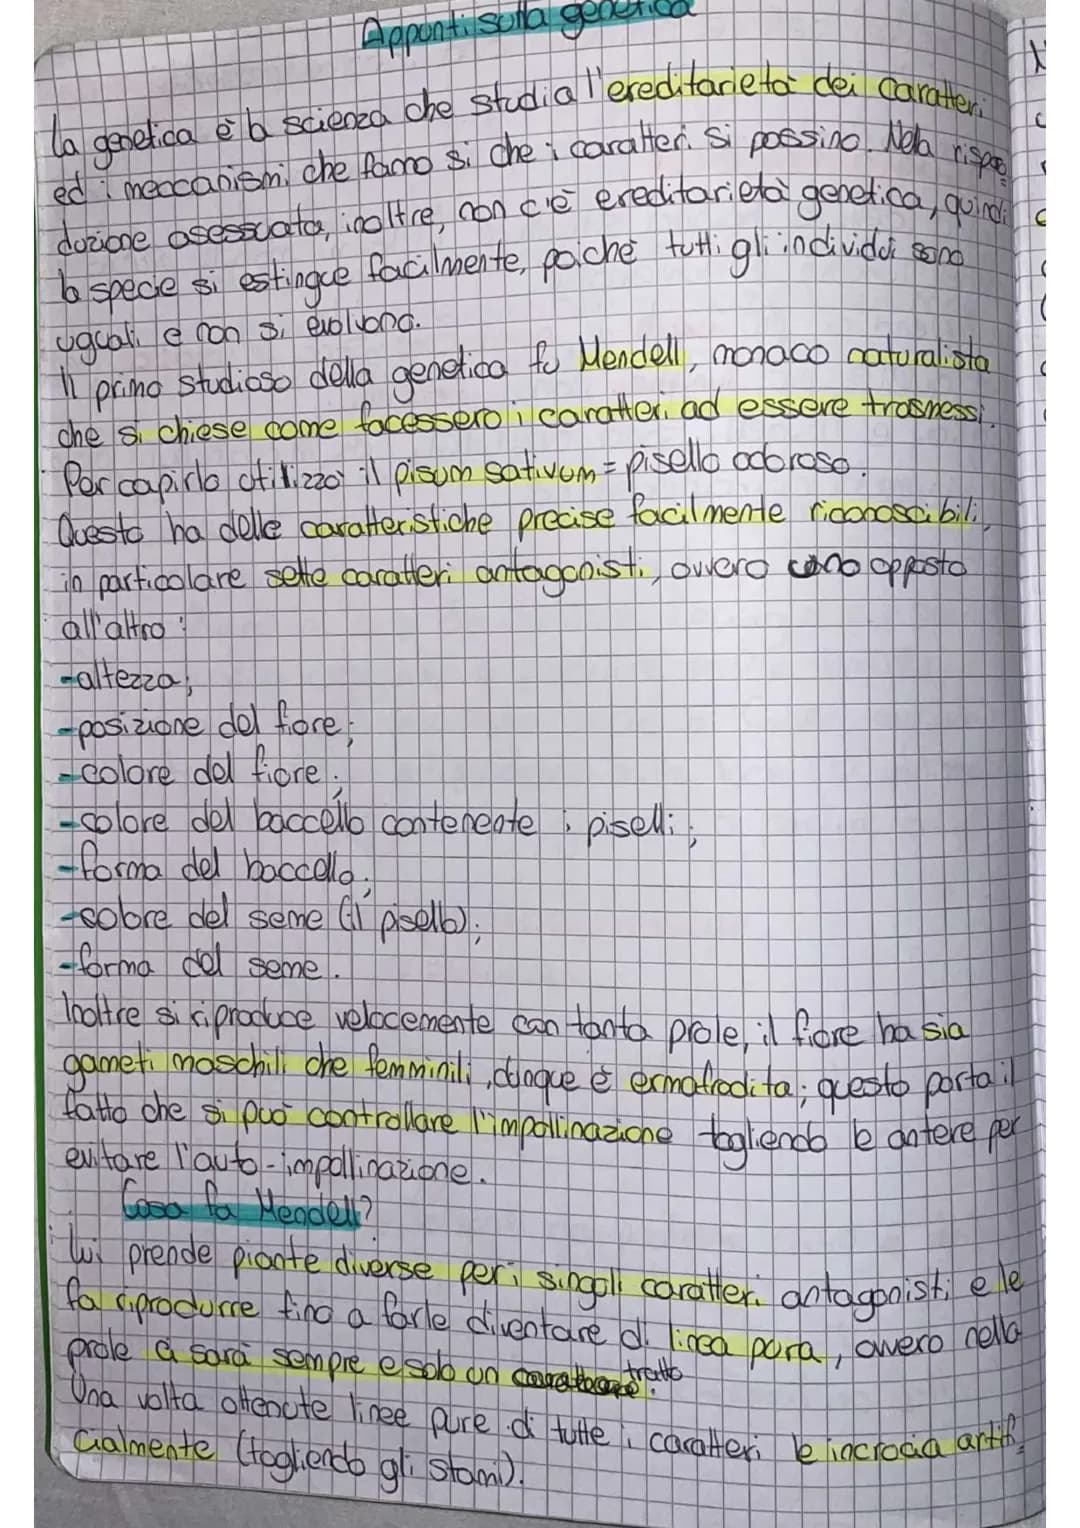 Appunti sulla genetica
la genetica è la scienza che studia l'ereditarietà dei caratteri
ed i meccanismi che fanno si che i caratteri si possino. Nella ripro
duzione asessuata, inoltre, non c'è ereditarietà genetica, quindi
la specie si estingue facilmente, poiché tutti gli individui sono
uguali e non si evolvono.
Il primo studioso della genetica fu Mendell, monaco naturalista
che si chiese come facessero i caratteri ad essere trasmessi.
Per capirlo utilizzò il pisum sativum = pisello odoroso.
Questo ha delle caratteristiche precise facilmente riconoscibili,
in particolare sette caratteri antagonisti, ovvero uno opposto
all'altro:
-altezza;
-posizione del fiore;
-colore del fiore;
-colore del baccello contenente i piselli;
-forma del baccello;
-colore del seme (il pisello);
-forma del seme.
Inoltre si riproduce velocemente con tanta prole, il fiore ha sia
gameti maschili che femminili, dunque è ermafrodita; questo porta il
fatto che si può controllare l'impollinazione togliendo le antere per
evitare l'auto-impollinazione.
Cosa fa Mendell?
Lui prende piante diverse per i singoli caratteri antagonisti e le
fa riprodurre fino a farle diventare di linea pura, ovvero nella
prole ci sarà sempre e solo un tratto.
Una volta ottenute linee pure di tutte i caratteri le incrocia artifi
cialmente (togliendo gli stami).